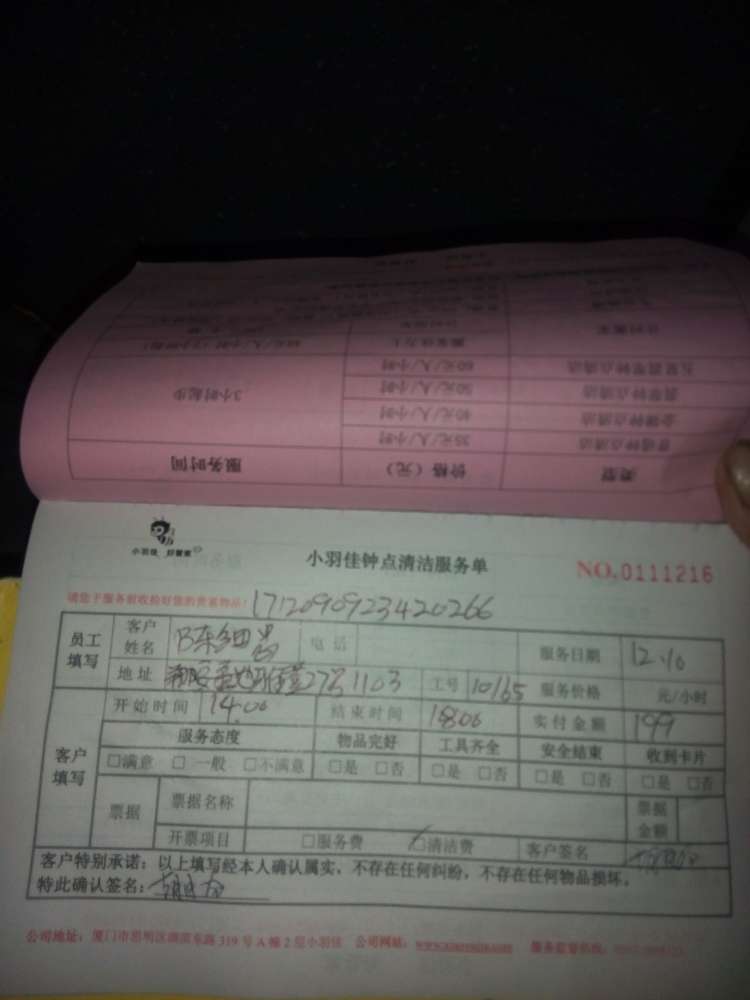 类型 价格（元） 服务时间
普通钟点清洁 35元/人/小时 3小时起步
金牌钟点清洁 40元/人/小时
翡翠钟点清洁 50元/人/小时
60元/人/小时
小羽佳 好管家
小羽佳钟点清洁服务单
NO.0111216
请您于服务前收捡好您的贵重物品！ 1712090923420266
员工填写 客户姓名 陈细 电话 服务日期 12.10
地址 27号1103 工号 10165 服务价格 元/小时
客户填写 开始时间 14.06 结束时间 18.06 实付金额 199
服务态度 物品完好 工具齐全 安全结束 收到卡片
□满意 □一般 □不满意 □是 □否 □是 □否 □是 □否 □是 □否
票据 票据名称 票据金额
开票项目 □服务费 □清洁费 客户签名
客户特别承诺：以上填写经本人确认属实，不存在任何纠纷，不存在任何物品损坏。
特此确认签名：
公司地址：厦门市思明区湖滨东路 319 号 A 幢 2 层小羽佳 公司网站： 服务监督热线：